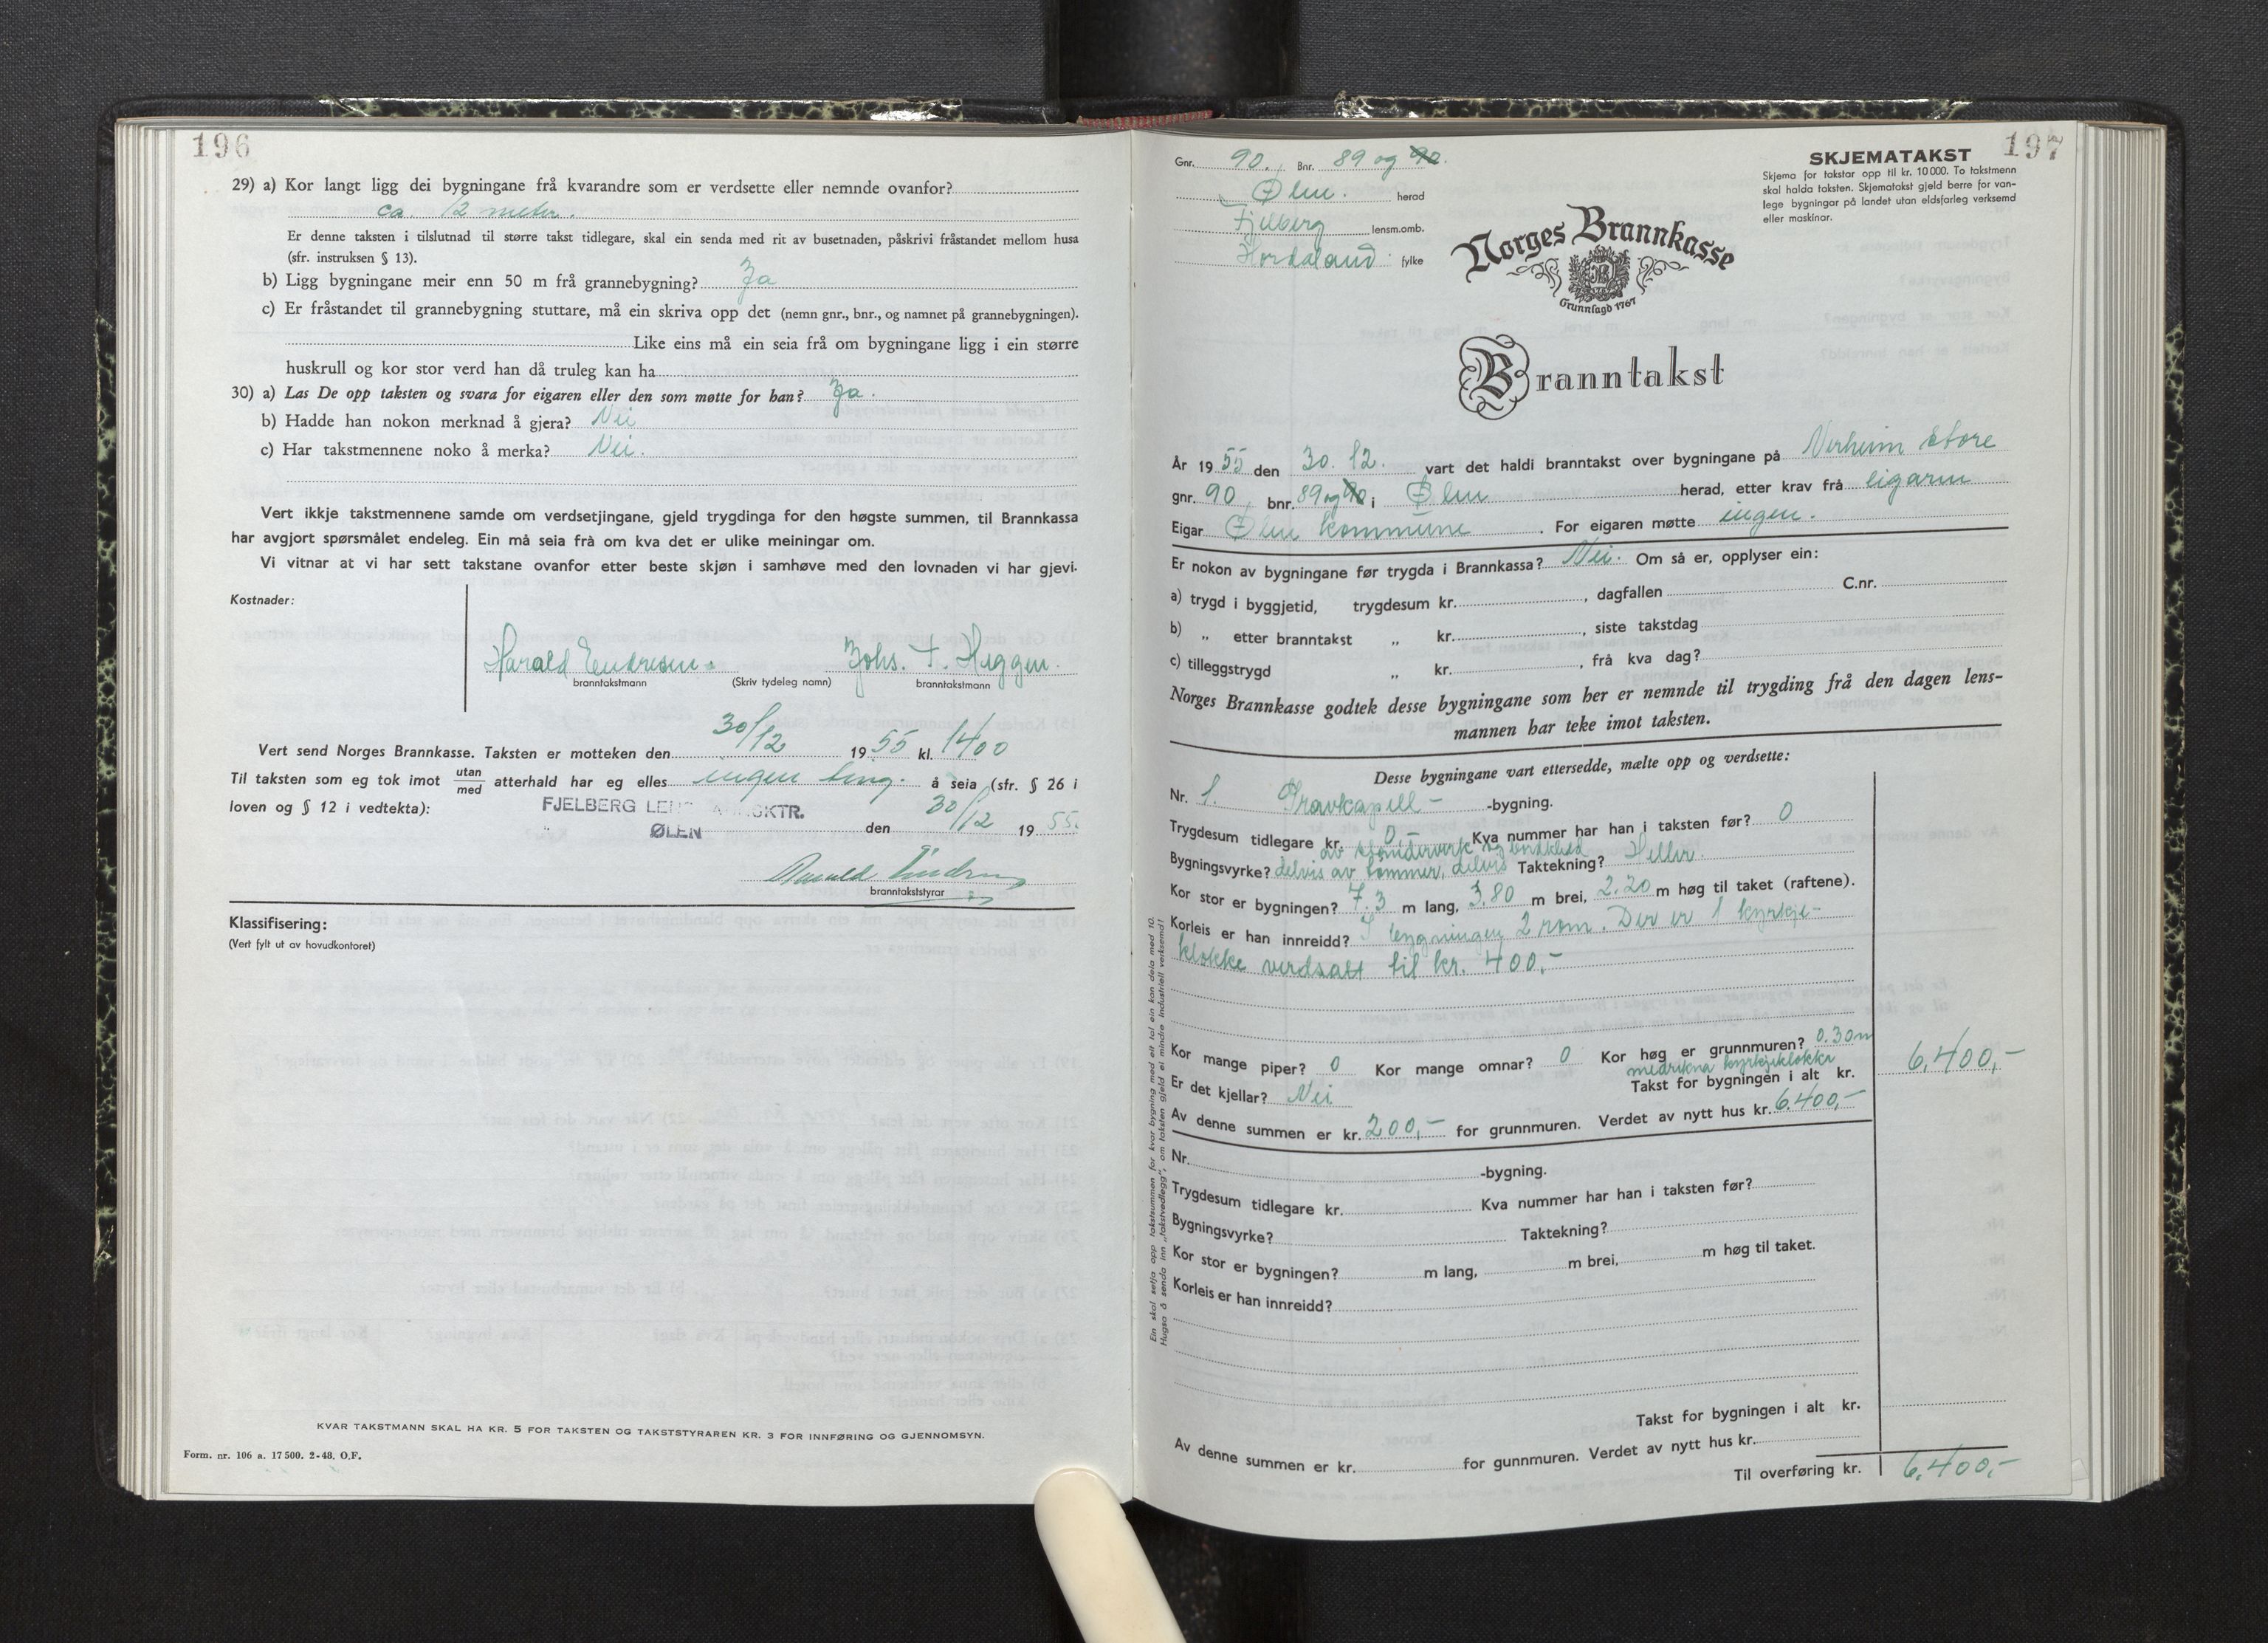 196
29) a) Kor langt ligg dei bygningane frå kvarandre som er verdsette eller nemnde ovanfor?
ca. 12 meter.
Er denne taksten i tilslutnad til større takst tidlegare, skal ein senda med rit av busetnaden, påskrivi fråstandet mellom husa
(sfr. instruksen § 13).
b) Ligg bygningane meir enn 50 m frå grannebygning? Ja
c) Er fråstandet til grannebygning stuttare, må ein skriva opp det (nemn gnr., bnr., og namnet på grannebygningen).
Like eins må ein seia frå om bygningane ligg i ein større
huskrull og kor stor verd han då truleg kan ha
30) a) Las De opp taksten og svara for eigaren eller den som møtte for han? Ja.
b) Hadde han nokon merknad å gjera? Nei
c) Har takstmennene noko å merka? Nei.
Vert ikkje takstmennene samde om verdsetjingane, gjeld trygdinga for den høgste summen, til Brannkassa
har avgjort spørsmålet endeleg. Ein må seia frå om kva det er ulike meiningar om.
Vi vitnar at vi har sett takstane ovanfor etter beste skjøn i samhøve med den lovnaden vi har gjevi.
Kostnader:
Harald Endresen Johs. F. Heggen.
branntakstmann (Skriv tydeleg namn) branntakstmann
Vert send Norges Brannkasse. Taksten er motteken den 30/12 1955 kl. 1400
Til taksten som eg tok imot utan/med atterhald har eg elles ingen ting. å seia (sfr. § 26 i
loven og § 12 i vedtekta):
FJELBERG LENSMANNSKTR.
ØLEN den 30/12 1955.
Harald Endresen
branntakststyrar
Klassifisering:
(Vert fylt ut av hovudkontoret)
KVAR TAKSTMANN SKAL HA KR. 5 FOR TAKSTEN OG TAKSTSTYRAREN KR. 3 FOR INNFØRING OG GJENNOMSYN.
Form. nr. 106 a. 17 500. 2-48. O.F.
197
SKJEMATAKST
Skjema for takstar opp til kr. 10 000. To takstmenn
skal halda taksten. Skjematakst gjeld berre for van-
lege bygningar på landet utan eldsfarleg verksemd
eller maskinar.
Gnr. 90., Bnr. 89 og 90.
Ølen. herad
Fjelberg lensm.omb.
Hordaland. fylke
Norges Brannkasse
Grunnlagd 1767
Branntakst
År 1955 den 30. 12. vart det haldi branntakst over bygningane på Nerheim Store
gnr. 90, bnr. 89 og 90 i Ølen herad, etter krav frå eigaren
Eigar Ølen kommune. For eigaren møtte ingen.
Er nokon av bygningane før trygda i Brannkassa? Nei. Om så er, opplyser ein:
a) trygd i byggjetid, trygdesum kr. , dagfallen C.nr.
b) „ etter branntakst „ kr. , siste takstdag
c) tilleggstrygd „ kr. , frå kva dag?
Norges Brannkasse godtek desse bygningane som her er nemnde til trygding frå den dagen lens-
mannen har teke imot taksten.
Desse bygningane vart ettersedde, mælte opp og verdsette:
Nr. 1. Gravkapell- -bygning.
Trygdesum tidlegare kr. 0,- Kva nummer har han i taksten før? 0
av bindverk og bordkledd
Bygningsvyrke? delvis av tømmer, delvis Taktekning? Heller.
Kor stor er bygningen? 7.3 m lang, 3.80 m brei, 2.20 m høg til taket (raftene).
Korleis er han innreidd? I bygningen 2 rom. Der er 1 kyrkje-
klokke verdsatt til kr. 400,-
Kor mange piper? 0 Kor mange omnar? 0 Kor høg er grunnmuren? 0.30m
medrekna kyrkjeklokka
Er det kjellar? Nei Takst for bygningen i alt kr. 6.400,-
Av denne summen er kr. 200,- for grunnmuren. Verdet av nytt hus kr. 6.400,-
Nr. -bygning.
Trygdesum tidlegare kr. Kva nummer har han i taksten før?
Bygningsvyrke? Taktekning?
Kor stor er bygningen? m lang, m brei, m høg til taket.
Korleis er han innreidd?
Takst for bygningen i alt kr.
Av denne summen er kr. for gunnmuren. Verdet av nytt hus kr.
Til overføring kr. 6.400,-
Ein skal setja opp takstsummen for kvar bygning med eit tal ein kan dela med 10.
Hugsa å senda inn „takstvedlegg", om taksten gjeld ei mindre industriell verksemd!